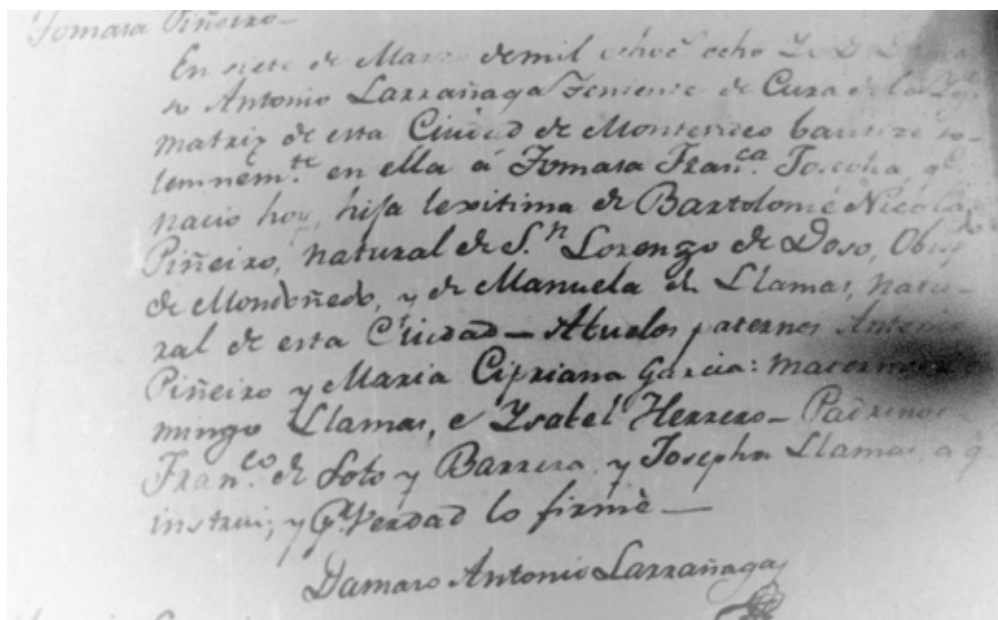 Tomasa Piñeiro
En siete de Marzo de mil ochoc.s ocho Yo D. Dama-
so Antonio Larrañaga Teniente de Cura de la
matriz de esta Ciudad de Montevideo bautizè so-
lemnem.te en ella á Tomasa Fran.ca Josepha q.e
nacio hoy, hija lexitima de Bartolomè Nicolas
Piñeiro, natural de S.n Lorenzo de Doso, Obisp.do
de Mondoñedo, y de Manuela de Llamas, natu-
ral de esta Ciudad — Abuelos paternos Antonio
Piñeiro y Maria Cipriana Garcia: maternos Do-
mingo Llamas, e Ysabel Herrero — Padrinos
Fran.co de Soto y Barrera, y Josepha Llamas, a q.
instrui; y p.r Verdad lo firmè —
Damaso Antonio Larrañaga